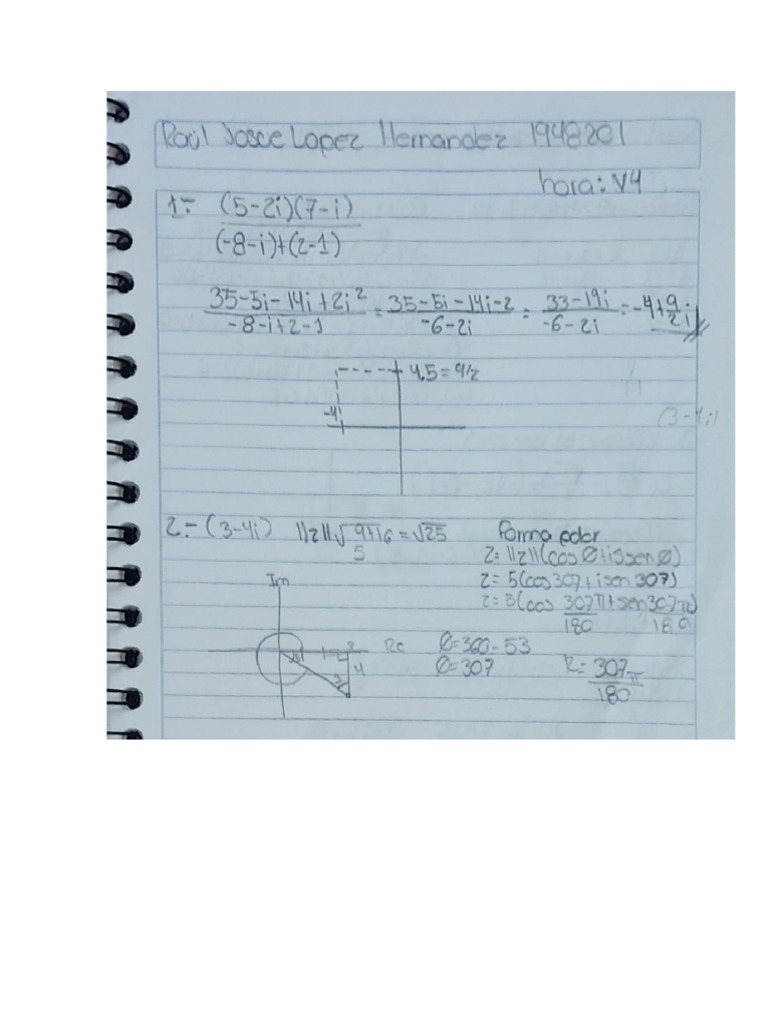 Raúl Josue Lopez Hernandez 1948201
hora: V4
1.- (5-2i)(7-i)
(-8-i)+(2-1)
35-5i-14i+2i² = 35-5i-14i-2 = 33-19i = -4+9/2 i
-8-i+2-1 -6-2i -6-2i
4.5=9/2
-4
(3-4i)
2.- (3-4i) ||z|| √9+16 = √25
5
Forma polar
z=||z||(cos Ø+i sen Ø)
z=5(cos 307+isen 307)
z=5(cos 307π+sen 307π)
180 180
Im
Re
4
Ø=360-53
Ø=307
R=307π
180